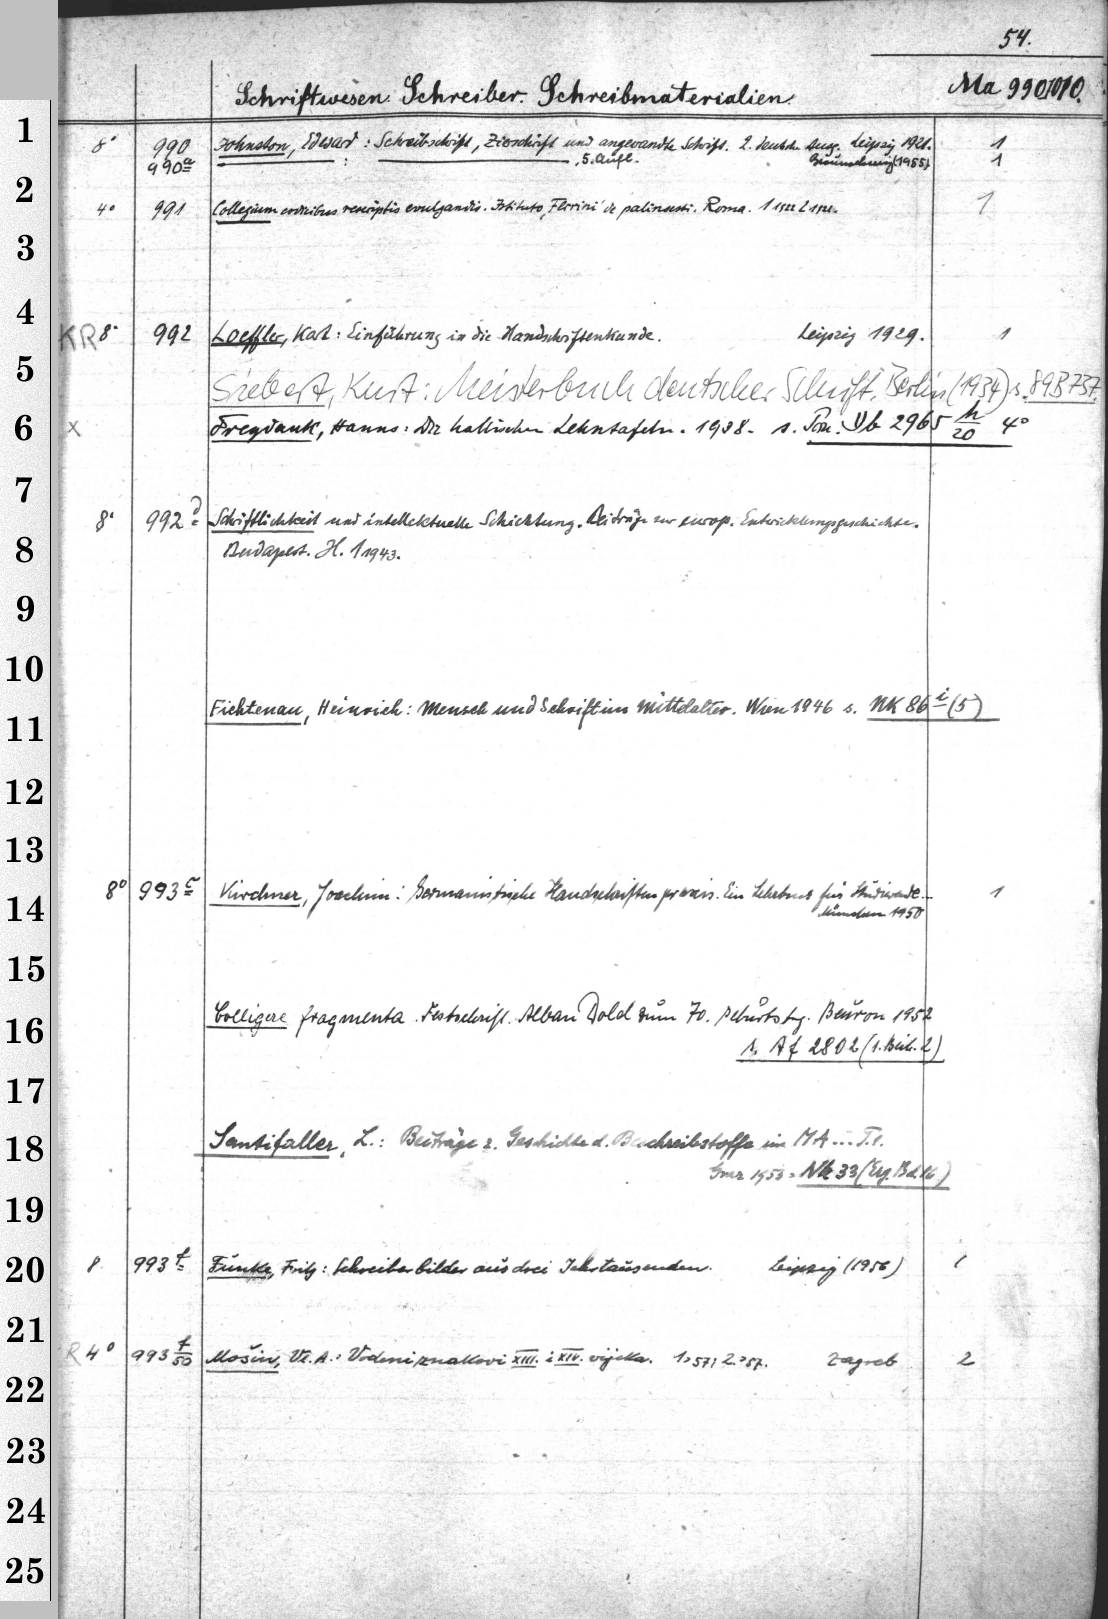 54.
Schriftwesen. Schreiber. Schreibmaterialien. Ma 990/1010.
1
8° 990 Johnston, Edward: Schreibschrift, Zierschrift und angewandte Schrift. 2. deutsche Ausg. Leipzig 1921. 1
990a : 5. Aufl. Braunschweig (1955) 1
2
4° 991 Collegium codicibus rescriptis evulgandis. Istituto Ferrini di palinsesti. Roma. 1 1922 2 1922. 1
3
4
KR 8° 992 Loeffler, Karl: Einführung in die Handschriftenkunde. Leipzig 1929. 1
5
Siebert, Kurt: Meisterbuch deutscher Schrift. Berlin (1934) s. 89B737.
6
x Freydank, Hanns: Die hallischen Lehntafeln. 1938. s. Pon. Vb 2965 h/20 4°
7
8° 992d Schriftlichkeit und intellektuelle Schichtung. Beiträge zur europ. Entwicklungsgeschichte.
8
Budapest. H. 1 1943.
9
10
Fichtenau, Heinrich: Mensch und Schrift im Mittelalter. Wien 1946 s. NK 86i (5)
11
12
13
8° 993c Kirchner, Joachim: Germanistische Handschriftenpraxis. Ein Lehrbuch für Studierende.. 1
14
München 1950
15
Colligere fragmenta. Festschrift. Alban Dold zum 70. Geburtstag. Beuron 1952
16
s. Af 2802 (1. Beih. 2)
17
Santifaller, L.: Beiträge z. Geschichte d. Beschreibstoffe im MA... T. 1.
18
Graz 1953 = Nk 33 (Erg. Bd. 16)
19
8 993f Funke, Fritz: Schreiberbilder aus drei Jahrtausenden. Leipzig (1956) 1
20
21
R 4° 993 f/50 Mošin, Vl. A.: Vodeni znakovi XIII. i XIV. vijeka. 1.57; 2.57. Zagreb 2
22
23
24
25